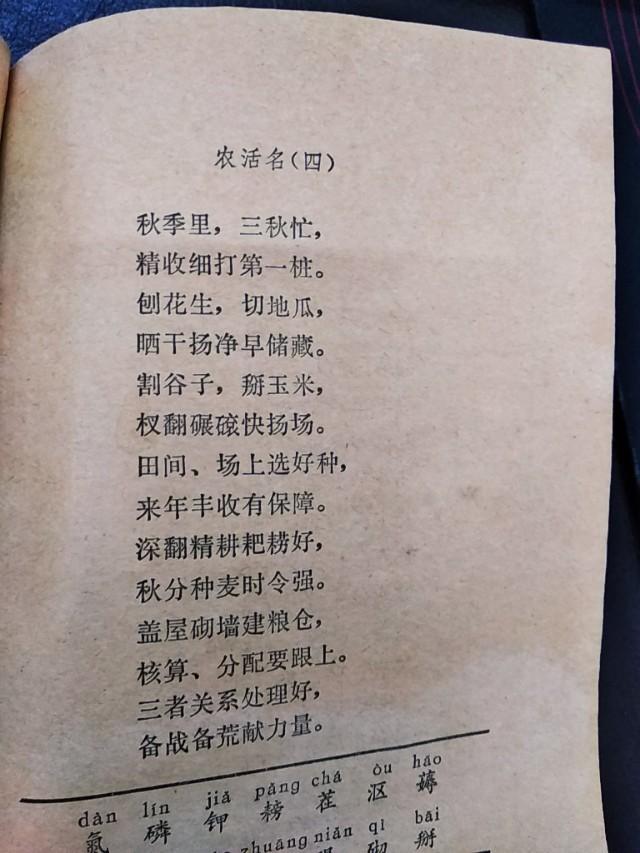 农活名(四)
秋季里，三秋忙，
精收细打第一桩。
刨花生，切地瓜，
晒干扬净早储藏。
割谷子，掰玉米，
杈翻碾磙快扬场。
田间、场上选好种，
来年丰收有保障。
深翻精耕耙耢好，
秋分种麦时令强。
盖屋砌墙建粮仓，
核算、分配要跟上。
三者关系处理好，
备战备荒献力量。
dàn lín jiǎ pǎng chá òu hāo
氮 磷 钾 耪 茬 沤 薅
zhuāng niǎn qì bāi
砌 掰